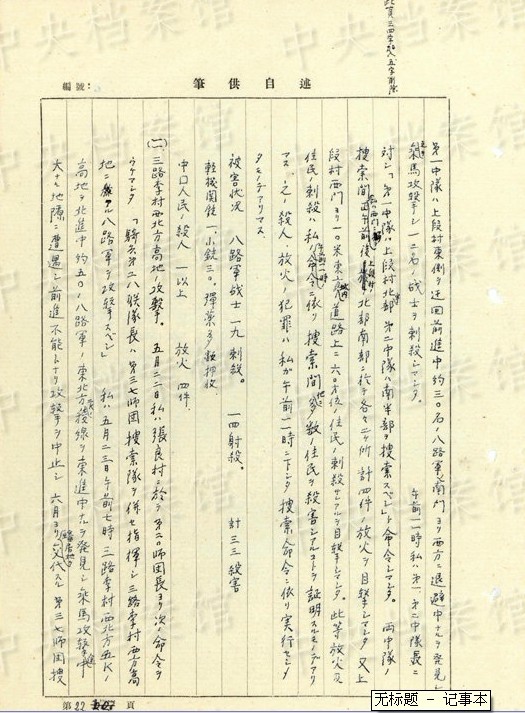 此頁三四字記入五字削除
編號：
筆供自述
第一中隊ハ上段村東側ヲ迂回前進中約三〇名ノ八路軍南門ヨリ西方ニ退避中ナルヲ発見シ
乗馬攻撃シ一二名ノ战士ヲ刺殺シマシタ。 午前一一時私ハ第一、第二中隊長ニ
対シ「第一中隊ハ上段村北部 第二中隊ハ南半部ヲ捜索スベシ」ト命令シマシタ。 両中隊ノ
捜索間 上段村 北部南部ニ於テ各々二ヶ所計四件ノ放火ヲ目撃シマシタ 又上
段村西門ヨリ一〇米東方 道路上ニ六〇才位ノ住民ノ刺殺サレタルヲ目撃シマシタ。此等放火及
住民ノ刺殺ハ私ノ 命令ニ依リ捜索間 多数ノ住民ヲ殺害シアルコトヲ証明スルモノデアリ
マス、之ノ殺人、放火ノ犯罪ハ私ガ午前一一時ニ下シタ捜索命令ニ依リ実行セシメ
タモノデアリマス、
被害状况 八路軍战士一九刺殺。 一四射殺。 計三三殺害
軽機関銃一、小銃三〇。彈薬 押收
中囗人民ノ殺人 一以上 放火 四件
(二)三路李村西北方高地攻撃。 五月二二日私ハ張良村ニ於テ 師団長ヨリ次ノ命令ヲ
ウケマシタ「騎兵第二八联隊長ハ第三七师团搜索隊ヲ併セ指揮シ三路李村西方高
地ニ 八路軍ヲ攻撃スベシ」 私ハ五月二三日午前七時三路李村西北方五Kノ
高地ヲ北進中約五〇ノ八路軍ノ東北方 稜線ヲ東進中ナルヲ発見シ乗馬攻撃
大ナル地隙ニ遭遇シ前進不能トナリ攻撃ヲ中止シ 六月ヨリ 交代スル第三七师团捜
第 22 頁
无标题 - 记事本